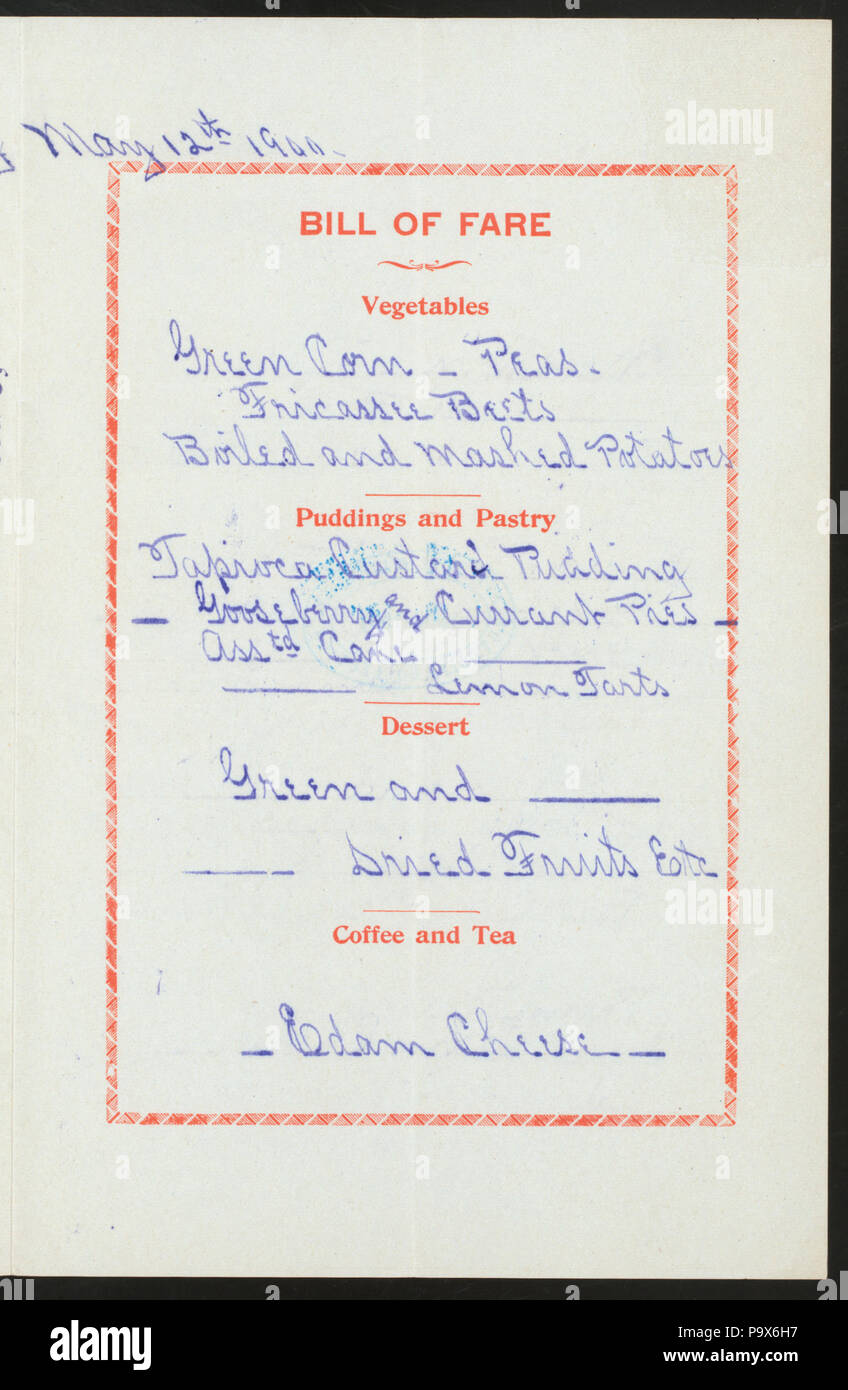 May 12th 1900-
BILL OF FARE
Vegetables
Green Corn - Peas-
Fricassee Beets
Boiled and Mashed Potatoes
Puddings and Pastry
Tapioca Custard Pudding
- Gooseberry and Currant Pies -
Asstd Cake
Lemon Tarts
Dessert
Green and
Dried Fruits Etc
Coffee and Tea
- Edam Cheese -
alamy
Image ID: P9X6H7
www.alamy.com